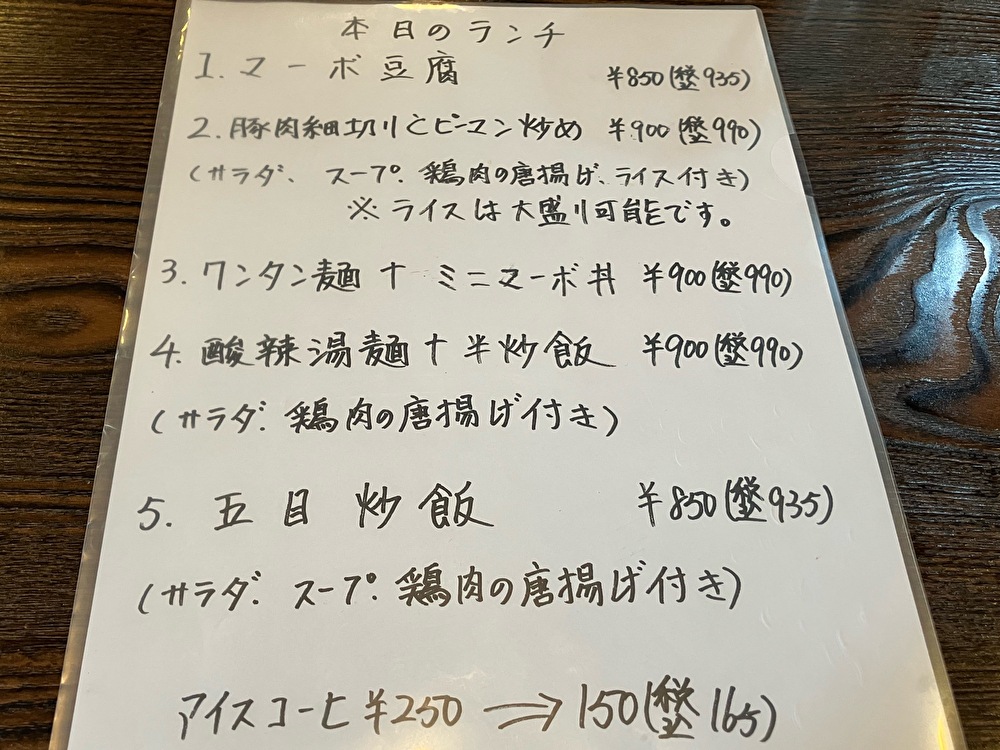 本日のランチ
1. マーボ豆腐 ¥850(税込935)
2. 豚肉細切りとピーマン炒め ¥900(税込990)
(サラダ、スープ、鶏肉の唐揚げ、ライス付き)
※ ライスは大盛り可能です。
3. ワンタン麺 + ミニマーボ丼 ¥900(税込990)
4. 酸辣湯麺 + 半炒飯 ¥900(税込990)
(サラダ、鶏肉の唐揚げ付き)
5. 五目炒飯 ¥850(税込935)
(サラダ、スープ、鶏肉の唐揚げ付き)
アイスコーヒ ¥250 ⇒ 150(税込165)